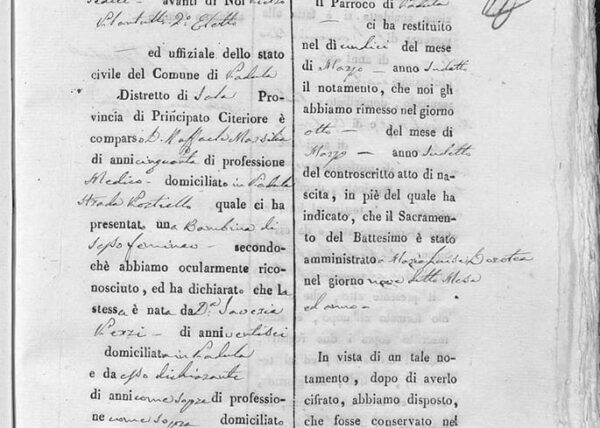 avanti di Noi
ed uffiziale dello stato
civile del Comune di Padula
Distretto di Sala Pro-
vincia di Principato Citeriore è
comparso D. Raffaele
di anni cinquanta di professione
Medico domiciliato in Padula
Strada quale ci ha
presentat una Bambina di
sesso femineo secondo-
chè abbiamo ocularmente rico-
nosciuto, ed ha dichiarato che la
stessa è nata da D.ª Saveria
di anni ventisei
domiciliata in Padula
e da esso dichiarante
di anni come sopra di professio-
ne come sopra domiciliato
Il Parroco di Padula
ci ha restituito
nel dì undici del mese
di Marzo anno sudetto
il notamento, che noi gli
abbiamo rimesso nel giorno
otto del mese di
Marzo anno sudetto
del controscritto atto di na-
scita, in piè del quale ha
indicato, che il Sacramen-
to del Battesimo è stato
amministrato a Maria Luisa Dorotea
nel giorno nove detto Mese
ed anno
In vista di un tale no-
tamento, dopo di averlo
cifrato, abbiamo disposto,
che fosse conservato nel